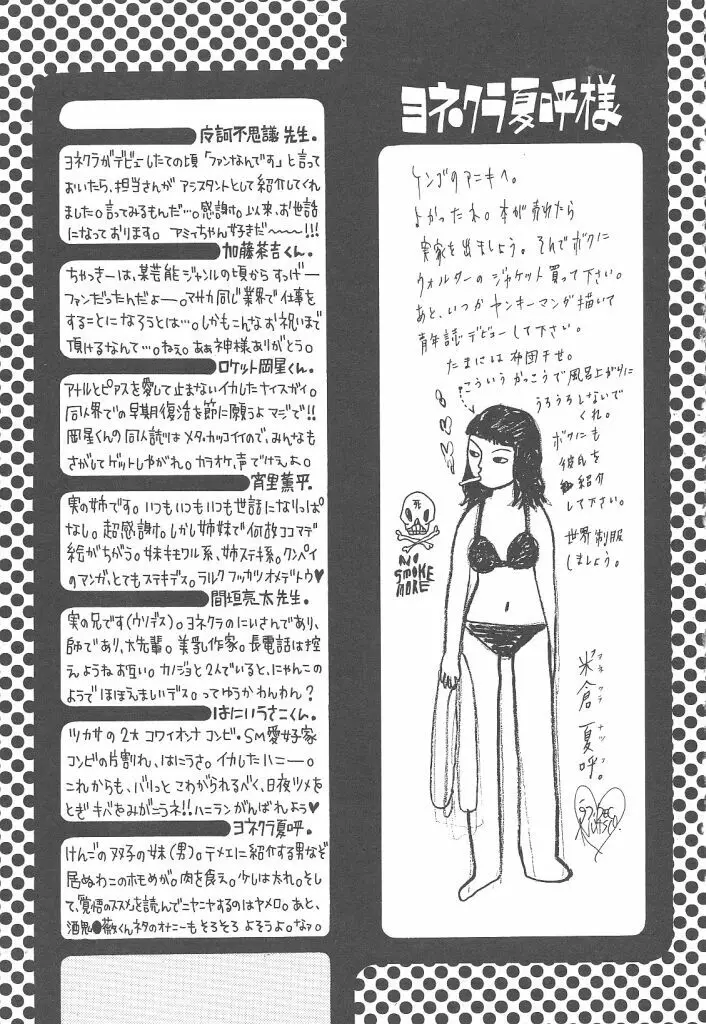 ヨネクラ夏呼様
ケンゴのアニキへ。
よかったネ。本が売れたら
実家を出ましょう。そんでボクに
ウォルターのジャケット買って下さい。
あと、いつかヤンキーマンガ描いて
青年誌デビューして下さい。
たまには布団干せ。
こういうかっこうで風呂上がりに
うろうろしないで
くれ。
ボクにも
彼氏を
紹介
して下さい。
世界制服
しましょう。
死
NO
SMOKE
MORE
米倉夏呼。
ヨネクラナツコ
摩訶不思議先生。
ヨネクラがデビューしたての頃「ファンなんです」と言って
おいたら、担当さんがアシスタントとして紹介してくれ
ました。言ってみるもんだ…。感謝。以来、お世話
になっております。アミィちゃん好きだ〜〜〜!!!
加藤茶吉くん。
ちゃっきーは、某芸能ジャンルの頃からすっげー
ファンだったんだよー。マサカ同じ業界で仕事を
することになろうとは…。しかもこんなお祝いまで
頂けるなんて…。ねぇ。あぁ神様ありがとう。
ロケット岡星くん。
アナルとピアスを愛して止まないイカしたナイスガイ。
同人界での早期復活を節に願うよマジで!!
岡星くんの同人誌はメタメタカッコイイので、みんなも
さがしてゲットしやがれ。カラオケ、声でけぇよ。
宵里薫平。
実の姉です。いつもいつもいつも世話になりっぱ
なし。超感謝。しかし姉妹で何故ココマデ
絵がちがう。妹キモワル系、姉ステキ系。クンペイ
のマンガ、とてもステキデス。ラルクフッカツオメデトウ♥
間垣亮太先生。
実の兄です(ウソデス)。ヨネクラのにいさんであり、
師であり、大先輩。美乳作家。長電話は控
えようねお互い。カノジョと2人でいると、にゃんこの
ようでほほえましいデス。ってゆうかわんわん?
はにいうさこくん。
ツカサの2大コワイオンナコンビ。SM愛好家
コンビの片割れ、はにうさ。イカしたハニー。
これからも、バリっとこわがられるべく、日夜ツメを
とぎキバをみがこうネ!!ハニランがんばれよう♥
ヨネクラ夏呼。
けんごの双子の妹(男)。テメエに紹介する男など
居ぬわこのホモめが。肉を食え。少しは太れ。そし
て、覚悟のススメを読んでニヤニヤするのはヤメロ。あと、
酒鬼●薇くんネタのオナニーもそろそろよそうよ。なァ。